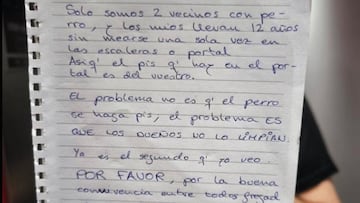 Solo somos 2 vecinos con pe-
rro, y los míos llevan 12 años
sin mearse una sola vez en
las escaleras o portal
Asiq' el pis q' hay en el por-
tal es del vuestro.
EL problema no es q' el perro
se haga pis, el problema ES
QUE LOS DUEÑOS NO LO LIMPIAN.
Ya es el segundo q' yo veo.
POR FAVOR, por la buena
convivencia entre todos